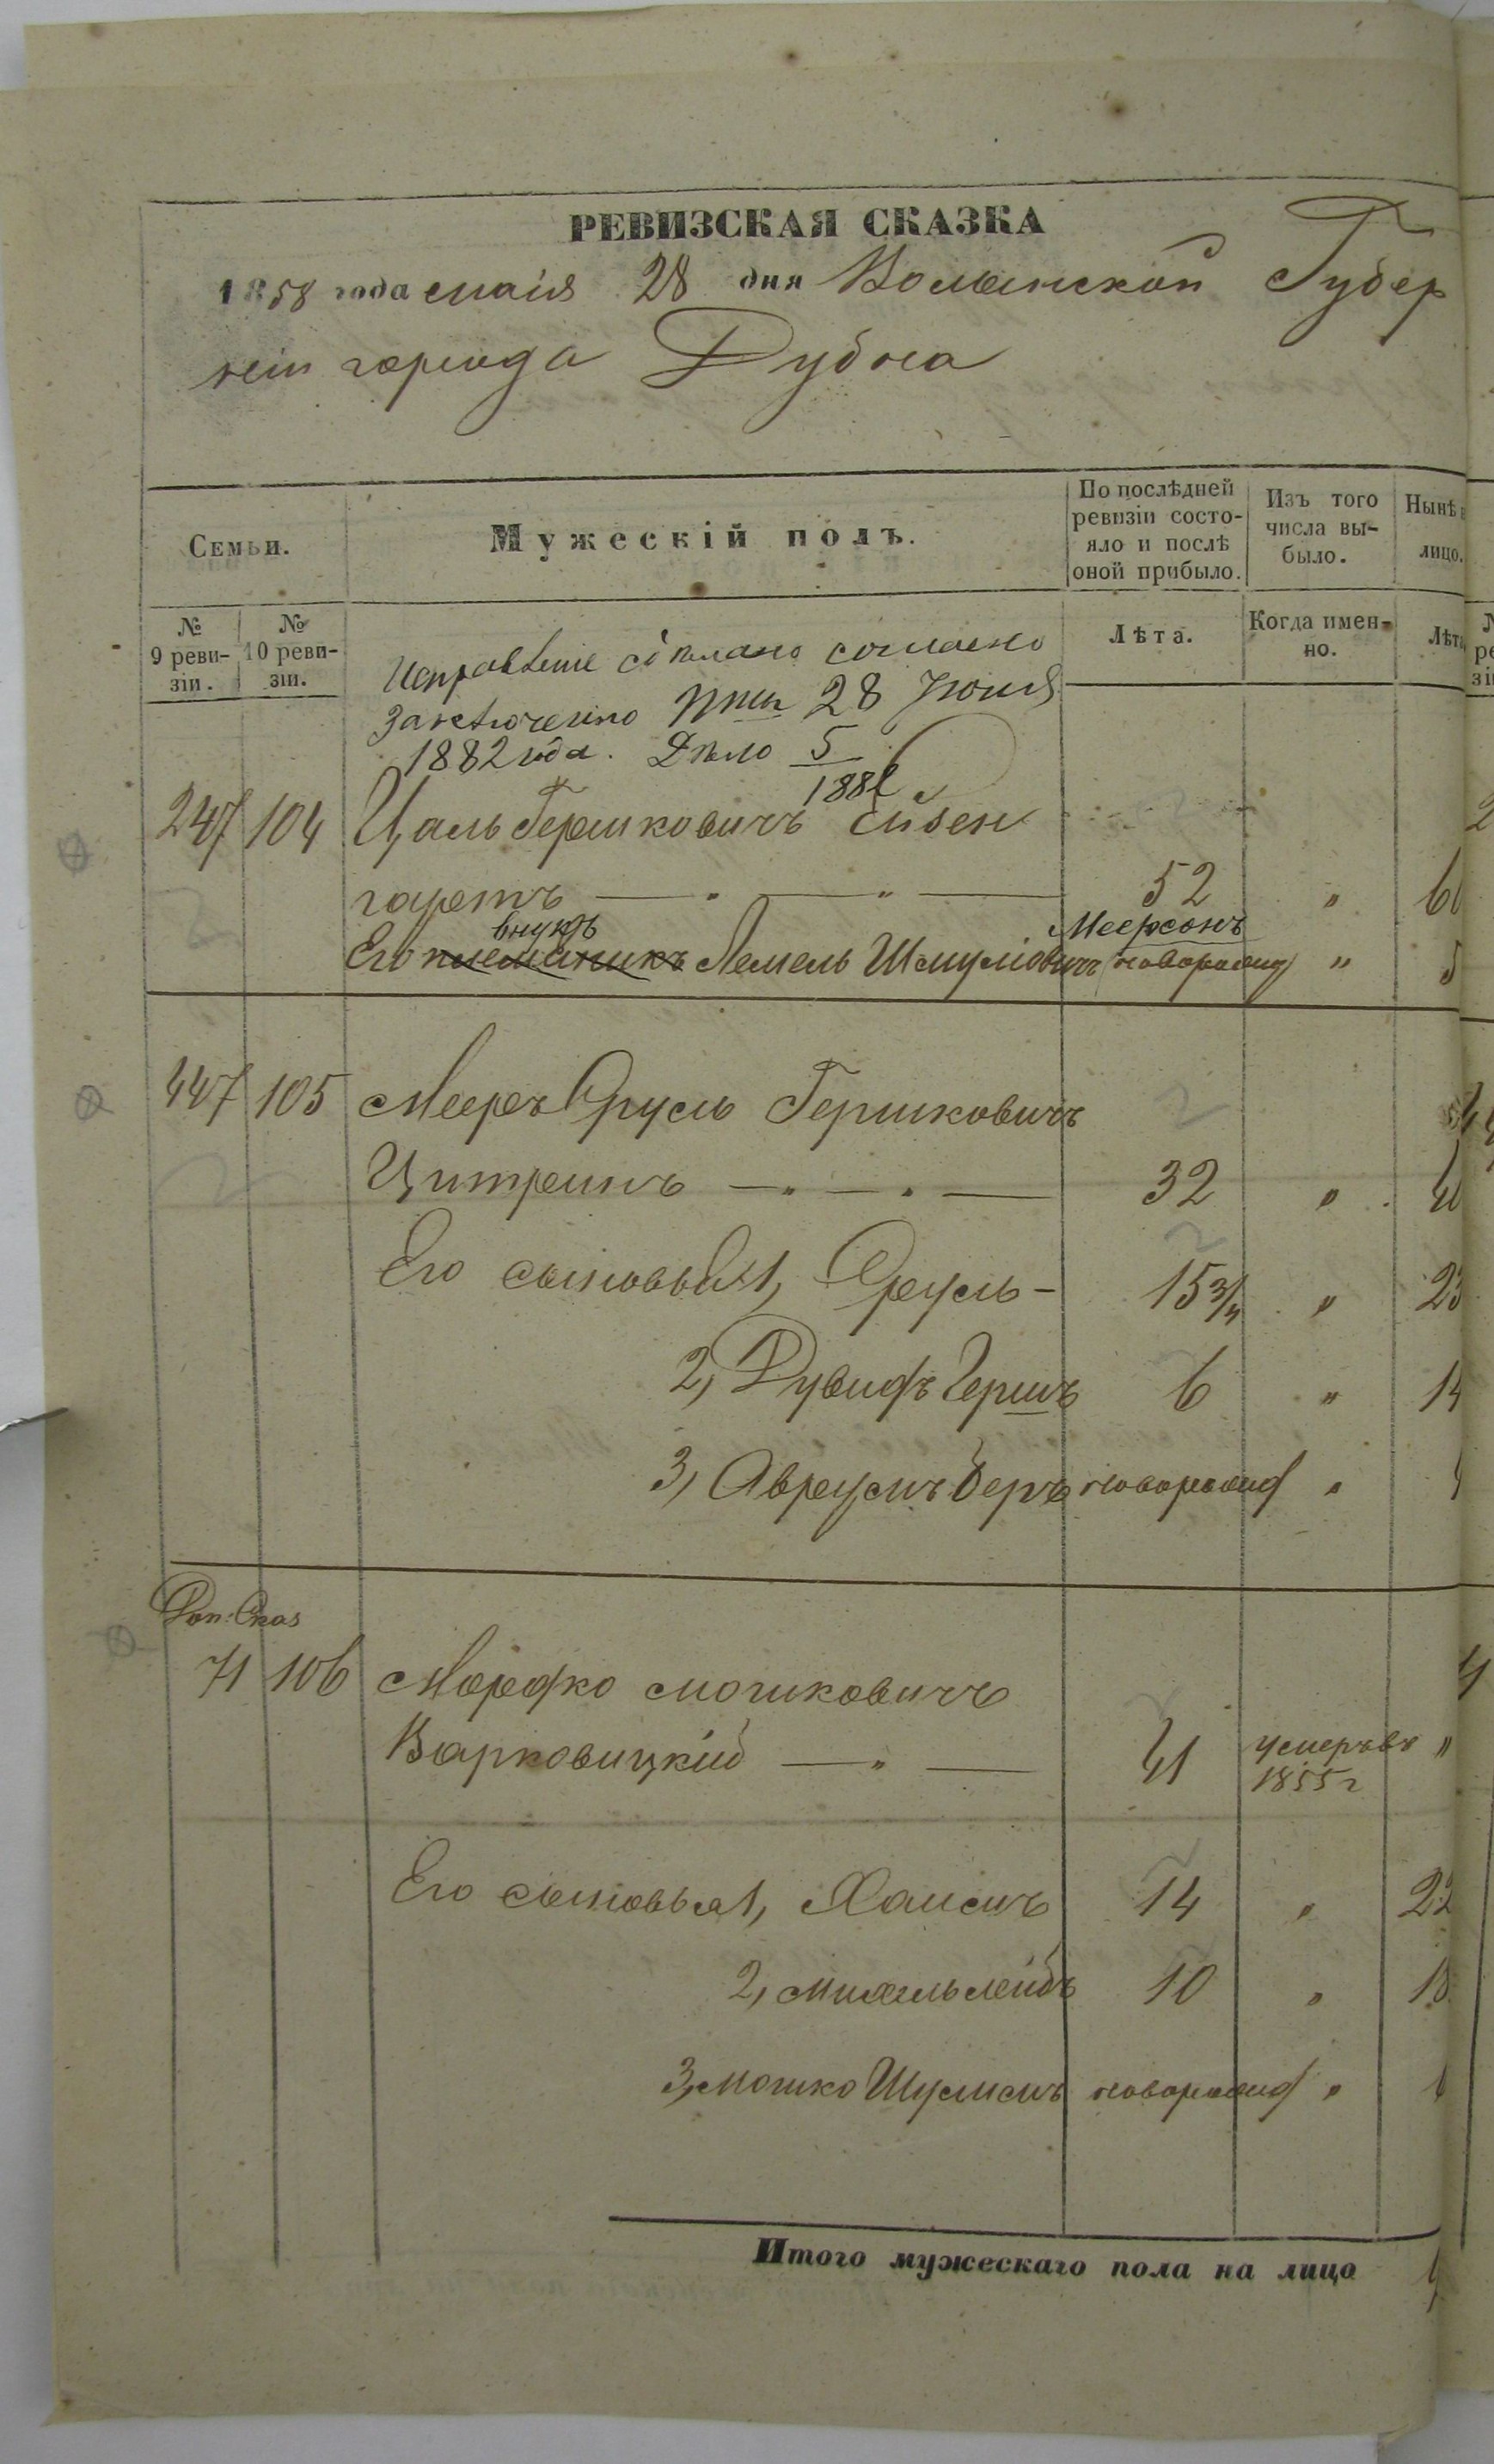 РЕВИЗСКАЯ СКАЗКА
1858 года маія 28 дня Волынской Губер
ніи города Дубна
Семьи.
Мужескій полъ.
По послѣдней ревизіи состо-
яло и послѣ
оной прибыло.
Изъ того
числа вы-
было.
Нынѣ
лицо.
№
9 реви-
зіи.
№
10 реви-
зіи.
Лѣта.
Когда имен-
но.
Лѣт
Исправленіе сдѣлано согласно
заключенію 28 Іюня
1882 года. Дѣло 5
188
247 104 Цаль Гершковичъ Ейзен
гартъ — " — " — 52 "
внукъ Меерсонъ
Его племяникъ Лемель Шмуліовичъ новорожд " 5
447 105 Мееръ Сруль Гершковичъ
Цитринъ — " — " — 32 "
Его сыновья 1, Сруль - 15 3/4 " 23
2, Дувидъ Гершъ 6 " 14
3, Аврумъ Беръ новорожд "
Доп: Скас
71 106 Мордко Мошковичъ
Варковицкій — " — 41 умеръ въ "
1855 г
Его сыновья 1, Хаимъ 14 " 22
2, Михель Лейбъ 10 " 18
3, Мошко Шулимъ новорожд "
Итого мужескаго пола на лицо